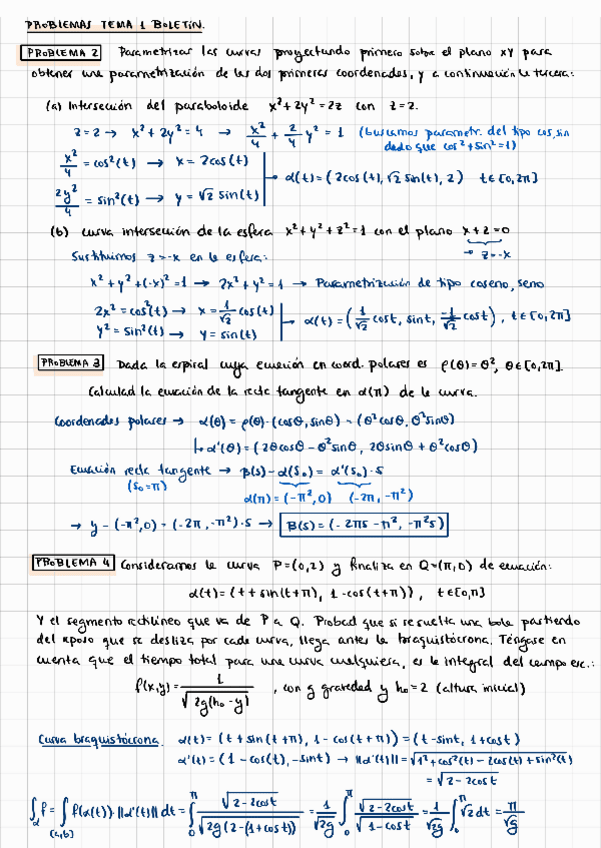 PROBLEMAS TEMA 1 BOLETÍN.
PROBLEMA 2 Parametrizar las curvas proyectando primero sobre el plano XY para
obtener una parametrización de las dos primeras coordenadas, y a continuación la tercera:
(a) Intersección del paraboloide x²+2y²=2z con z=2.
z=2 → x²+2y²=4 → x²/4 + 2/4 y² = 1 (buscamos parametr. del tipo cos, sin
dado que cos²+sin²=1)
x²/4 = cos²(t) → x = 2cos(t)
2y²/4 = sin²(t) → y = √2 sin(t)
→ α(t) = (2cos(t), √2 sin(t), 2) t∈[0,2π]
(b) curva intersección de la esfera x²+y²+z²=1 con el plano x+z=0
→ z=-x
Sustituimos z=-x en la esfera:
x²+y²+(-x)²=1 → 2x²+y²=1 → Parametrización de tipo coseno, seno
2x² = cos²(t) → x = 1/√2 cos(t)
y² = sin²(t) → y = sin(t)
→ α(t) = (1/√2 cost, sint, -1/√2 cost), t∈[0,2π]
PROBLEMA 3 Dada la espiral cuya ecuación en coord. polares es ρ(θ)=θ², θ∈[0,2π].
Calculad la ecuación de la recta tangente en α(π) de la curva.
Coordenadas polares → α(θ) = ρ(θ)·(cosθ, sinθ) = (θ²cosθ, θ²sinθ)
↳ α'(θ) = (2θcosθ - θ²sinθ, 2θsinθ + θ²cosθ)
Ecuación recta tangente → β(s) - α(s₀) = α'(s₀)·s
(s₀=π)
α(π) = (-π², 0) (-2π, -π²)
→ y - (-π², 0) = (-2π, -π²)·s → B(s) = (-2πs - π², -π²s)
PROBLEMA 4 Consideramos la curva P=(0,2) y finaliza en Q=(π,0) de ecuación:
α(t) = (t + sin(t+π), 1-cos(t+π)), t∈[0,π]
Y el segmento rectilíneo que va de P a Q. Probad que si se suelta una bola partiendo
del reposo que se desliza por cada curva, llega antes la braquistócrona. Téngase en
cuenta que el tiempo total para una curva cualquiera, es la integral del campo esc.:
f(x,y) = 1/√(2g(h₀-y)), con g gravedad y h₀=2 (altura inicial)
Curva braquistócrona. α(t) = (t + sin(t+π), 1-cos(t+π)) = (t-sint, 1+cost)
α'(t) = (1-cos(t), -sint) → ||α'(t)|| = √(1²+cos²(t)-2cos(t)+sin²(t))
= √(2-2cost)
∫_α f = ∫_[a,b] f(α(t))·||α'(t)|| dt = ∫₀^π √(2-2cost)/√(2g(2-(1+cost))) = 1/√2g ∫₀^π √(2-2cost)/√(1-cost) = 1/√2g ∫₀^π √2 dt = π/√g